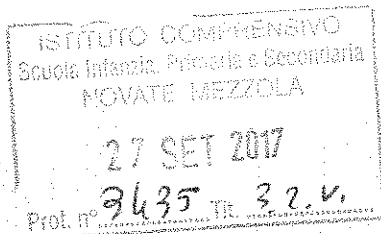 ISTITUTO COMPRENSIVO
Scuola Infanzia, Primaria e Secondaria
NOVATE MEZZOLA
27 SET 2017
Prot. n° 3435 Tit. 32.V.